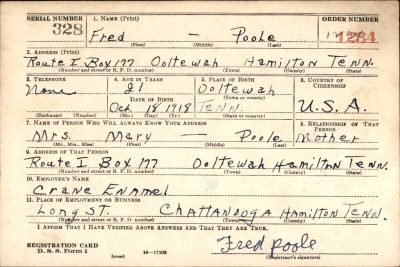 SERIAL NUMBER 1. NAME (Print) ORDER NUMBER
328 Fred — Poole 1284
(First) (Middle) (Last)
2. ADDRESS (Print)
Route I Box 177 Ooltewah Hamilton Tenn.
(Number and street or R. F. D. number) (Town) (County) (State)
3. TELEPHONE 4. AGE IN YEARS 5. PLACE OF BIRTH 6. COUNTRY OF CITIZENSHIP
None 21 Ooltewah
DATE OF BIRTH (Town or county)
Oct 18 1918 TENN. U.S.A.
(Exchange) (Number) (Mo.) (Day) (Yr.) (State or country)
7. NAME OF PERSON WHO WILL ALWAYS KNOW YOUR ADDRESS 8. RELATIONSHIP OF THAT PERSON
Mrs. Mary — Poole Mother
(Mr., Mrs., Miss) (First) (Middle) (Last)
9. ADDRESS OF THAT PERSON
Route I Box 177 Ooltewah Hamilton Tenn.
(Number and street or R. F. D. number) (Town) (County) (State)
10. EMPLOYER'S NAME
Crane Enamel
11. PLACE OF EMPLOYMENT OR BUSINESS
Long St. Chattanooga Hamilton Tenn.
(Number and street or R. F. D. number) (Town) (County) (State)
I AFFIRM THAT I HAVE VERIFIED ABOVE ANSWERS AND THAT THEY ARE TRUE.
Fred Poole
REGISTRATION CARD
D. S. S. Form 1 (over) 16—17105 (Registrant's signature)